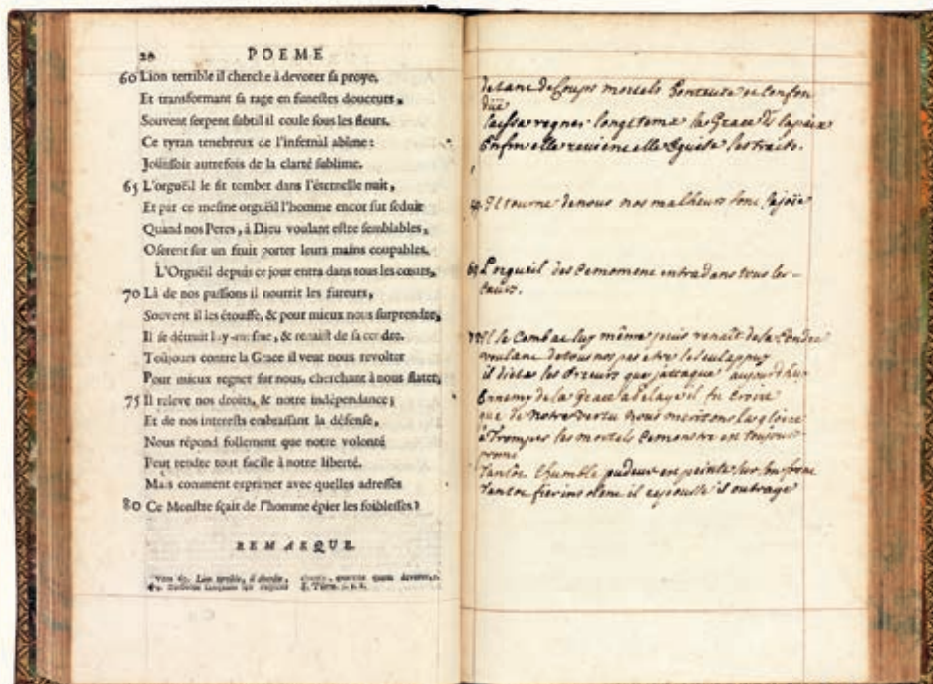 20 POEME
60 Lion terrible il cherche à devorer sa proye,
Et transformant sa rage en funestes douceurs,
Souvent serpent subtil il coule sous les fleurs.
Ce tyran tenebreux de l'infernal abîme:
Joüissoit autrefois de la clarté sublime.
65 L'orgueïl le fit tomber dans l'éternelle nuit,
Et par ce mesme orgueïl l'homme encor fut seduit
Quand nos Peres, à Dieu voulant estre semblables,
Oserent sur un fruit porter leurs mains coupables.
L'Orgueïl depuis ce jour entra dans tous les cœurs,
70 Là de nos passions il nourrit les fureurs,
Souvent il les étouffe, & pour mieux nous surprendre,
Il se détruit luy-mesme, & renaist de sa cendre.
Toûjours contre la Grace il veut nous revolter
Pour mieux regner sur nous, cherchant à nous flater,
75 Il releve nos droits, & notre indépendance;
Et de nos interests embrassant la défense,
Nous répond follement que notre volonté
Peut rendre tout facile à notre liberté.
Mais comment exprimer avec quelles adresses
80 Ce Monstre sçait de l'homme épier les foiblesses?
REMARQUE.
Vers 60. Lion terrible, il cherche,
quærens quem devoret.
de tant de Coups mortels honteuse et confon
düe
laissa regner longtems la Grace & la paix
Enfin elle revient elle éguise ses traits.
Il tourne de nous nos malheurs font sa joïe
L'orgueil des ce moment entra dans tous les
Cœurs.
Il se Combat luy même puis renaît de sa Cendre
voulant de tous nos pas être le seul appuy
il dicta les Erreurs que j'attaque aujourd'huy
Ennemy de la Grace a Pelage il fit croire
que de notre vertu nous meritons la gloire
à Tromper les mortels ce monstre est toujours
promt
Tantôt l'humble pudeur est peinte sur son front
Tantôt fier insolent il epouse il outrage